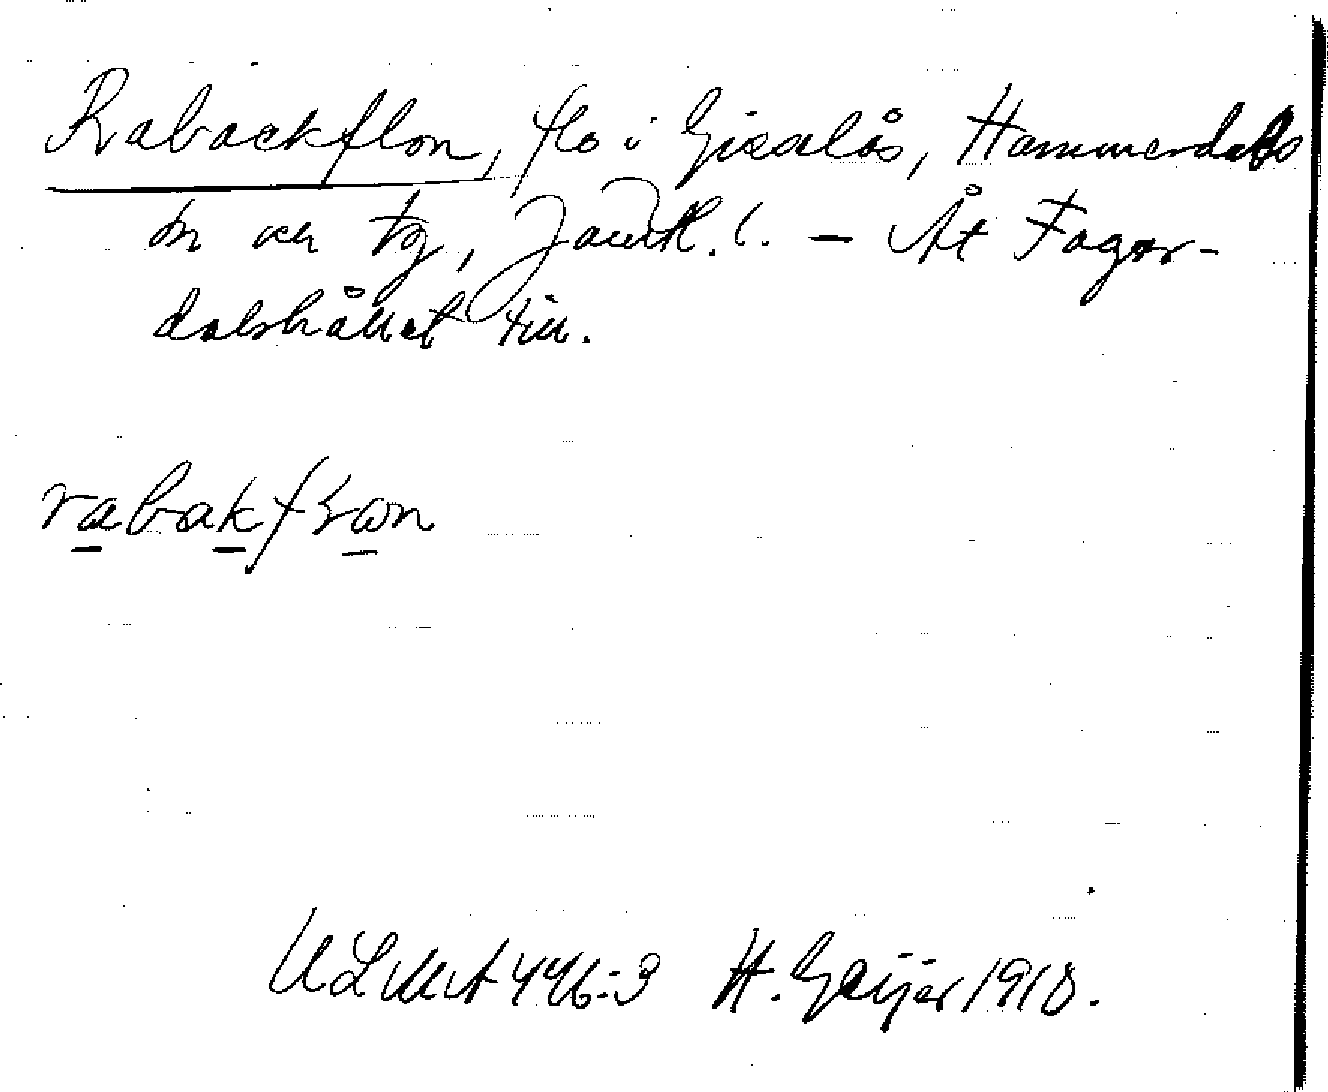 Raback­flon, flo i Gisselås, Hammerdals
sn och tg, Jämtl. l. – Åt Fager-
dalshållet till.
rabakflon
ULMA 446:3 H. Geijer 1918.